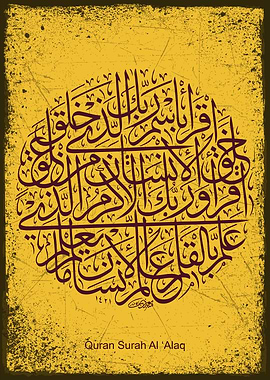 اقرأ باسم ربك الذي خلق
خلق الإنسان من علق
اقرأ وربك الأكرم الذي
علم بالقلم علم الإنسان ما لم يعلم
١٤٢١
Quran Surah Al ‘Alaq